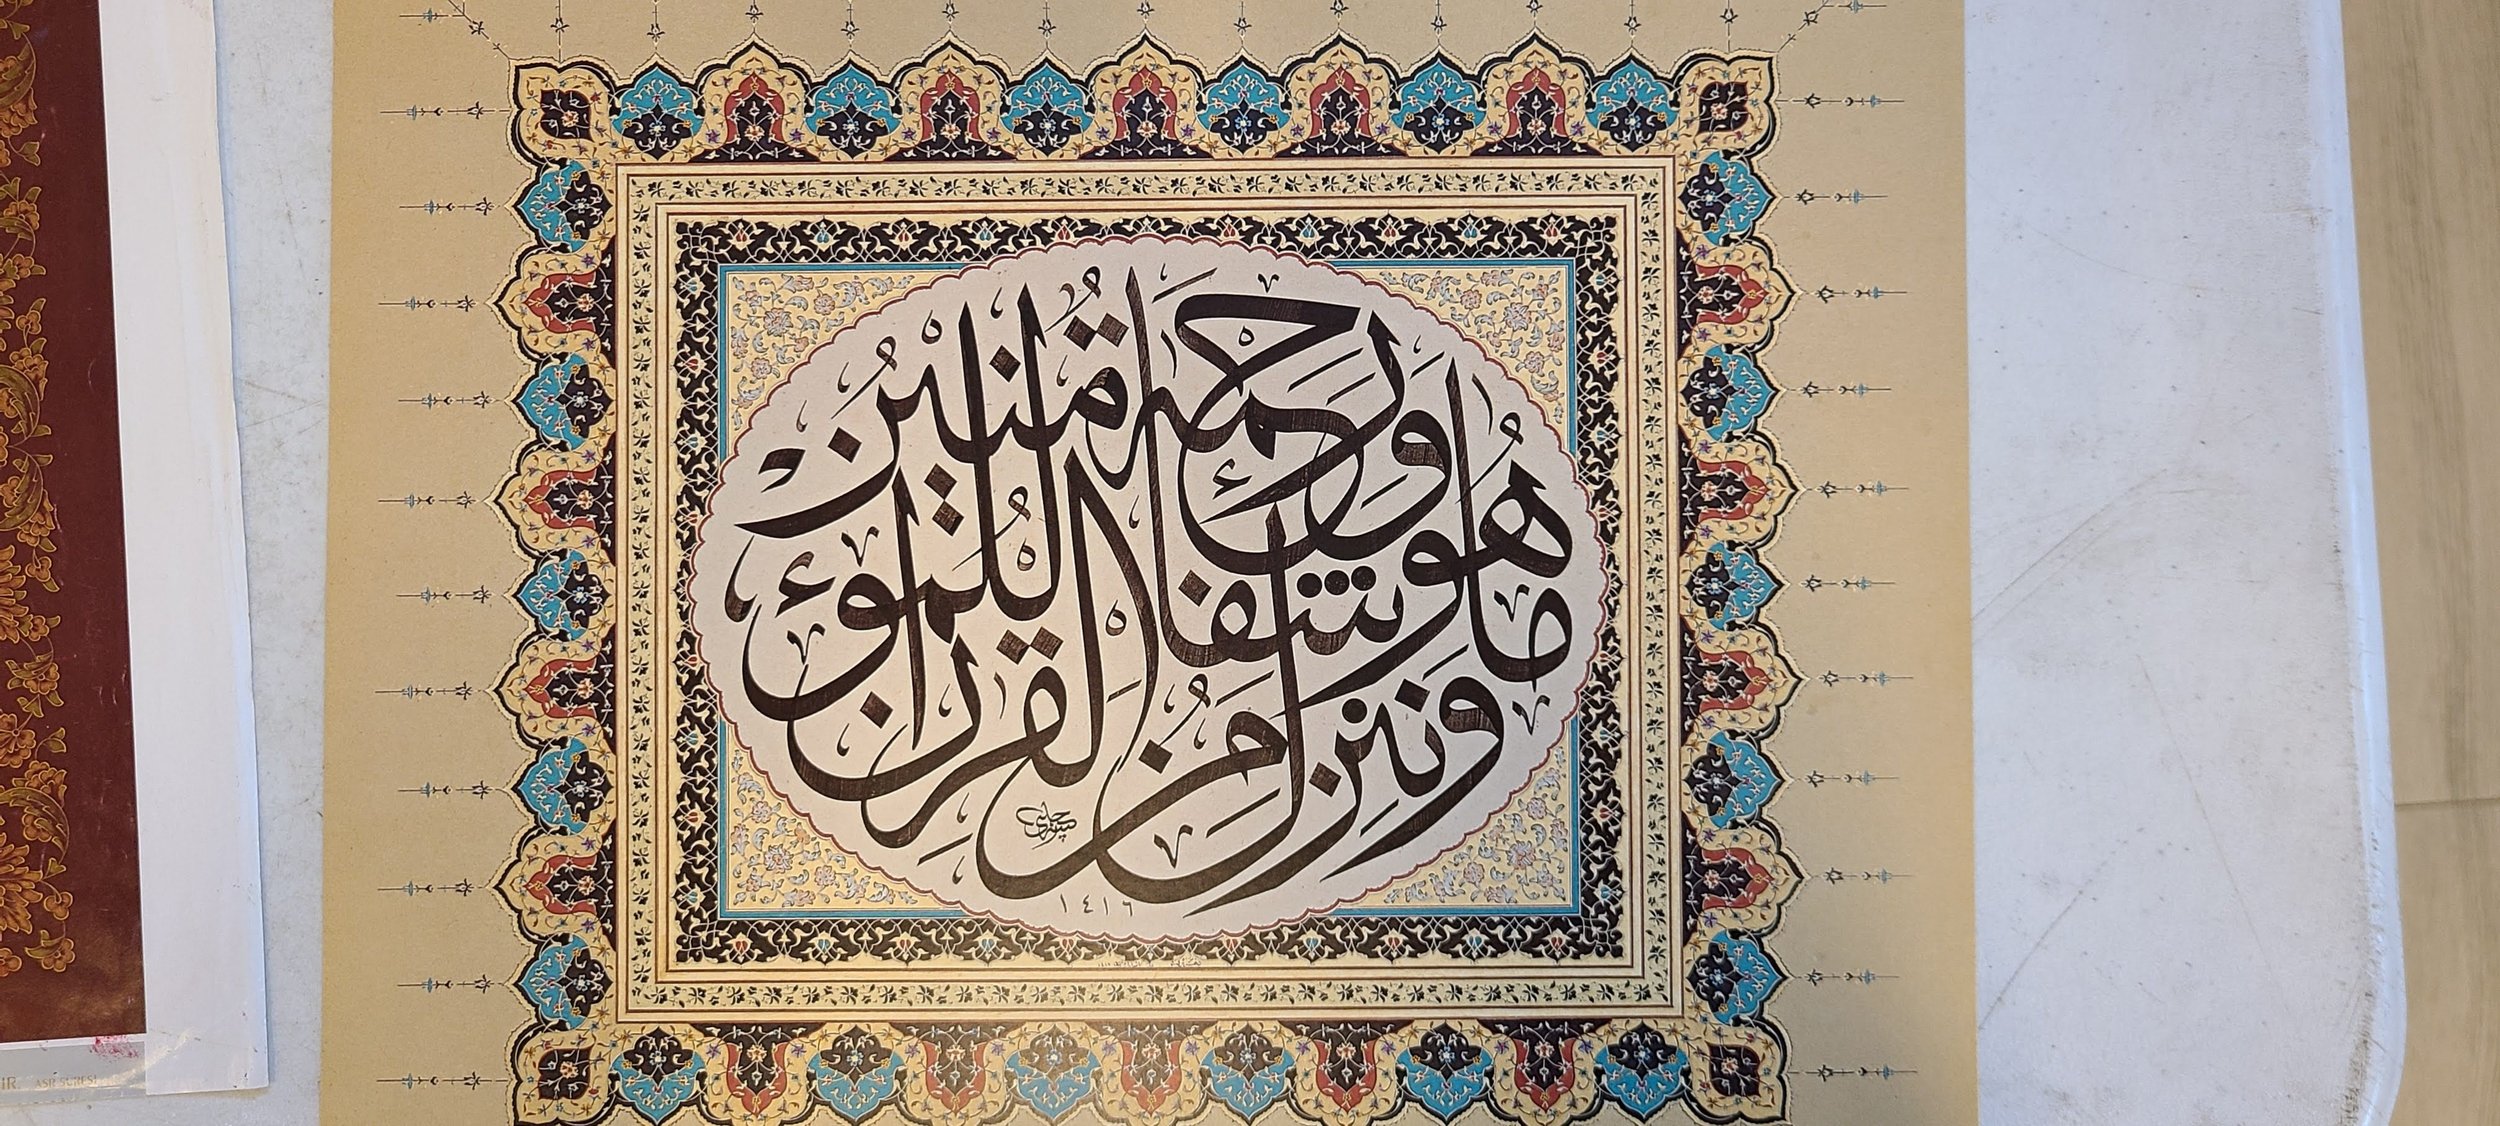 وَنُنَزِّلُ مِنَ الْقُرْآنِ
مَا هُوَ شِفَاءٌ وَرَحْمَةٌ لِلْمُؤْمِنِينَ
١٤١٦
ASR SURESİ